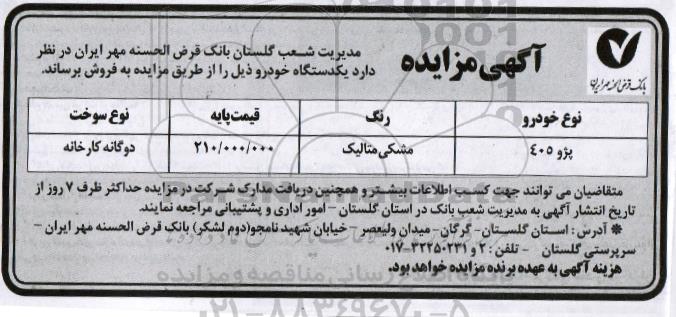 آگهی مزایده
مدیریت شعب گلستان بانک قرض الحسنه مهر ایران در نظر
دارد یکدستگاه خودرو ذیل را از طریق مزایده به فروش برساند.
بانک قرض الحسنه مهر ایران
نوع خودرو رنگ قیمت پایه نوع سوخت
پژو ٤٠٥ مشکی متالیک ٢١٠/٠٠٠/٠٠٠ دوگانه کارخانه
متقاضیان می توانند جهت کسب اطلاعات بیشتر و همچنین دریافت مدارک شرکت در مزایده حداکثر ظرف ٧ روز از
تاریخ انتشار آگهی به مدیریت شعب بانک در استان گلستان – امور اداری و پشتیبانی مراجعه نمایند.
* آدرس: استان گلستان- گرگان- میدان ولیعصر – خیابان شهید نامجو(دوم لشکر) بانک قرض الحسنه مهر ایران –
سرپرستی گلستان - تلفن: ٢ و ٣٢٢٥٠٢٣١-٠١٧
هزینه آگهی به عهده برنده مزایده خواهد بود.
پایگاه اطلاع رسانی مناقصه و مزایده
٠٢١-٨٨٣٤٩٦٧٠-٥